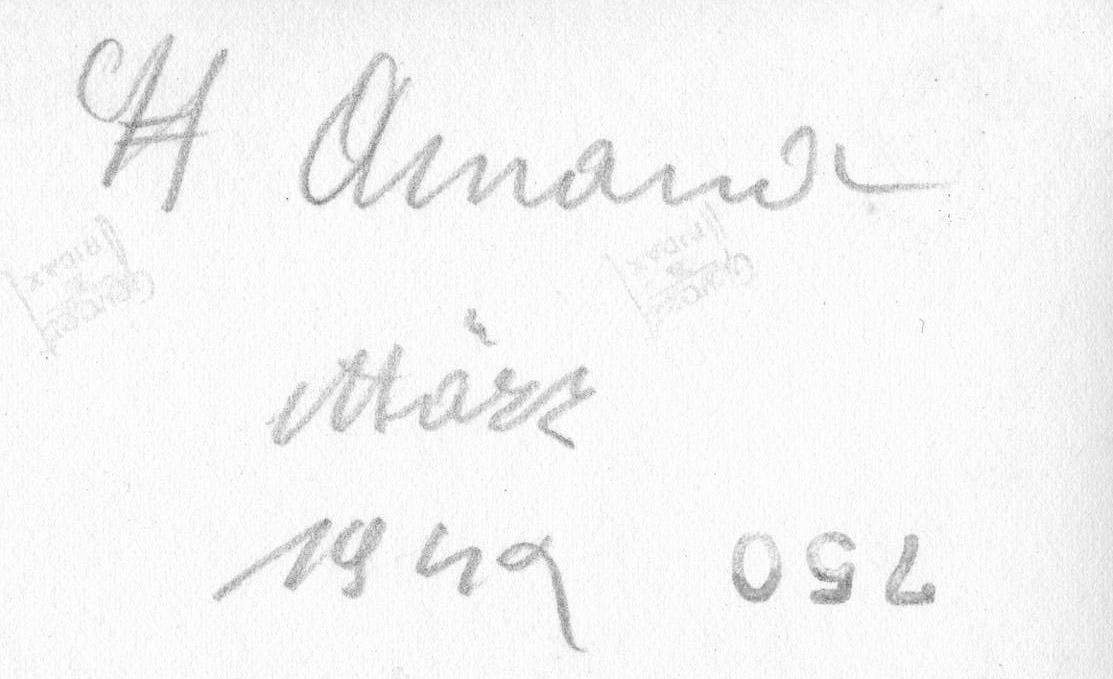 St Amand
März
1942 750